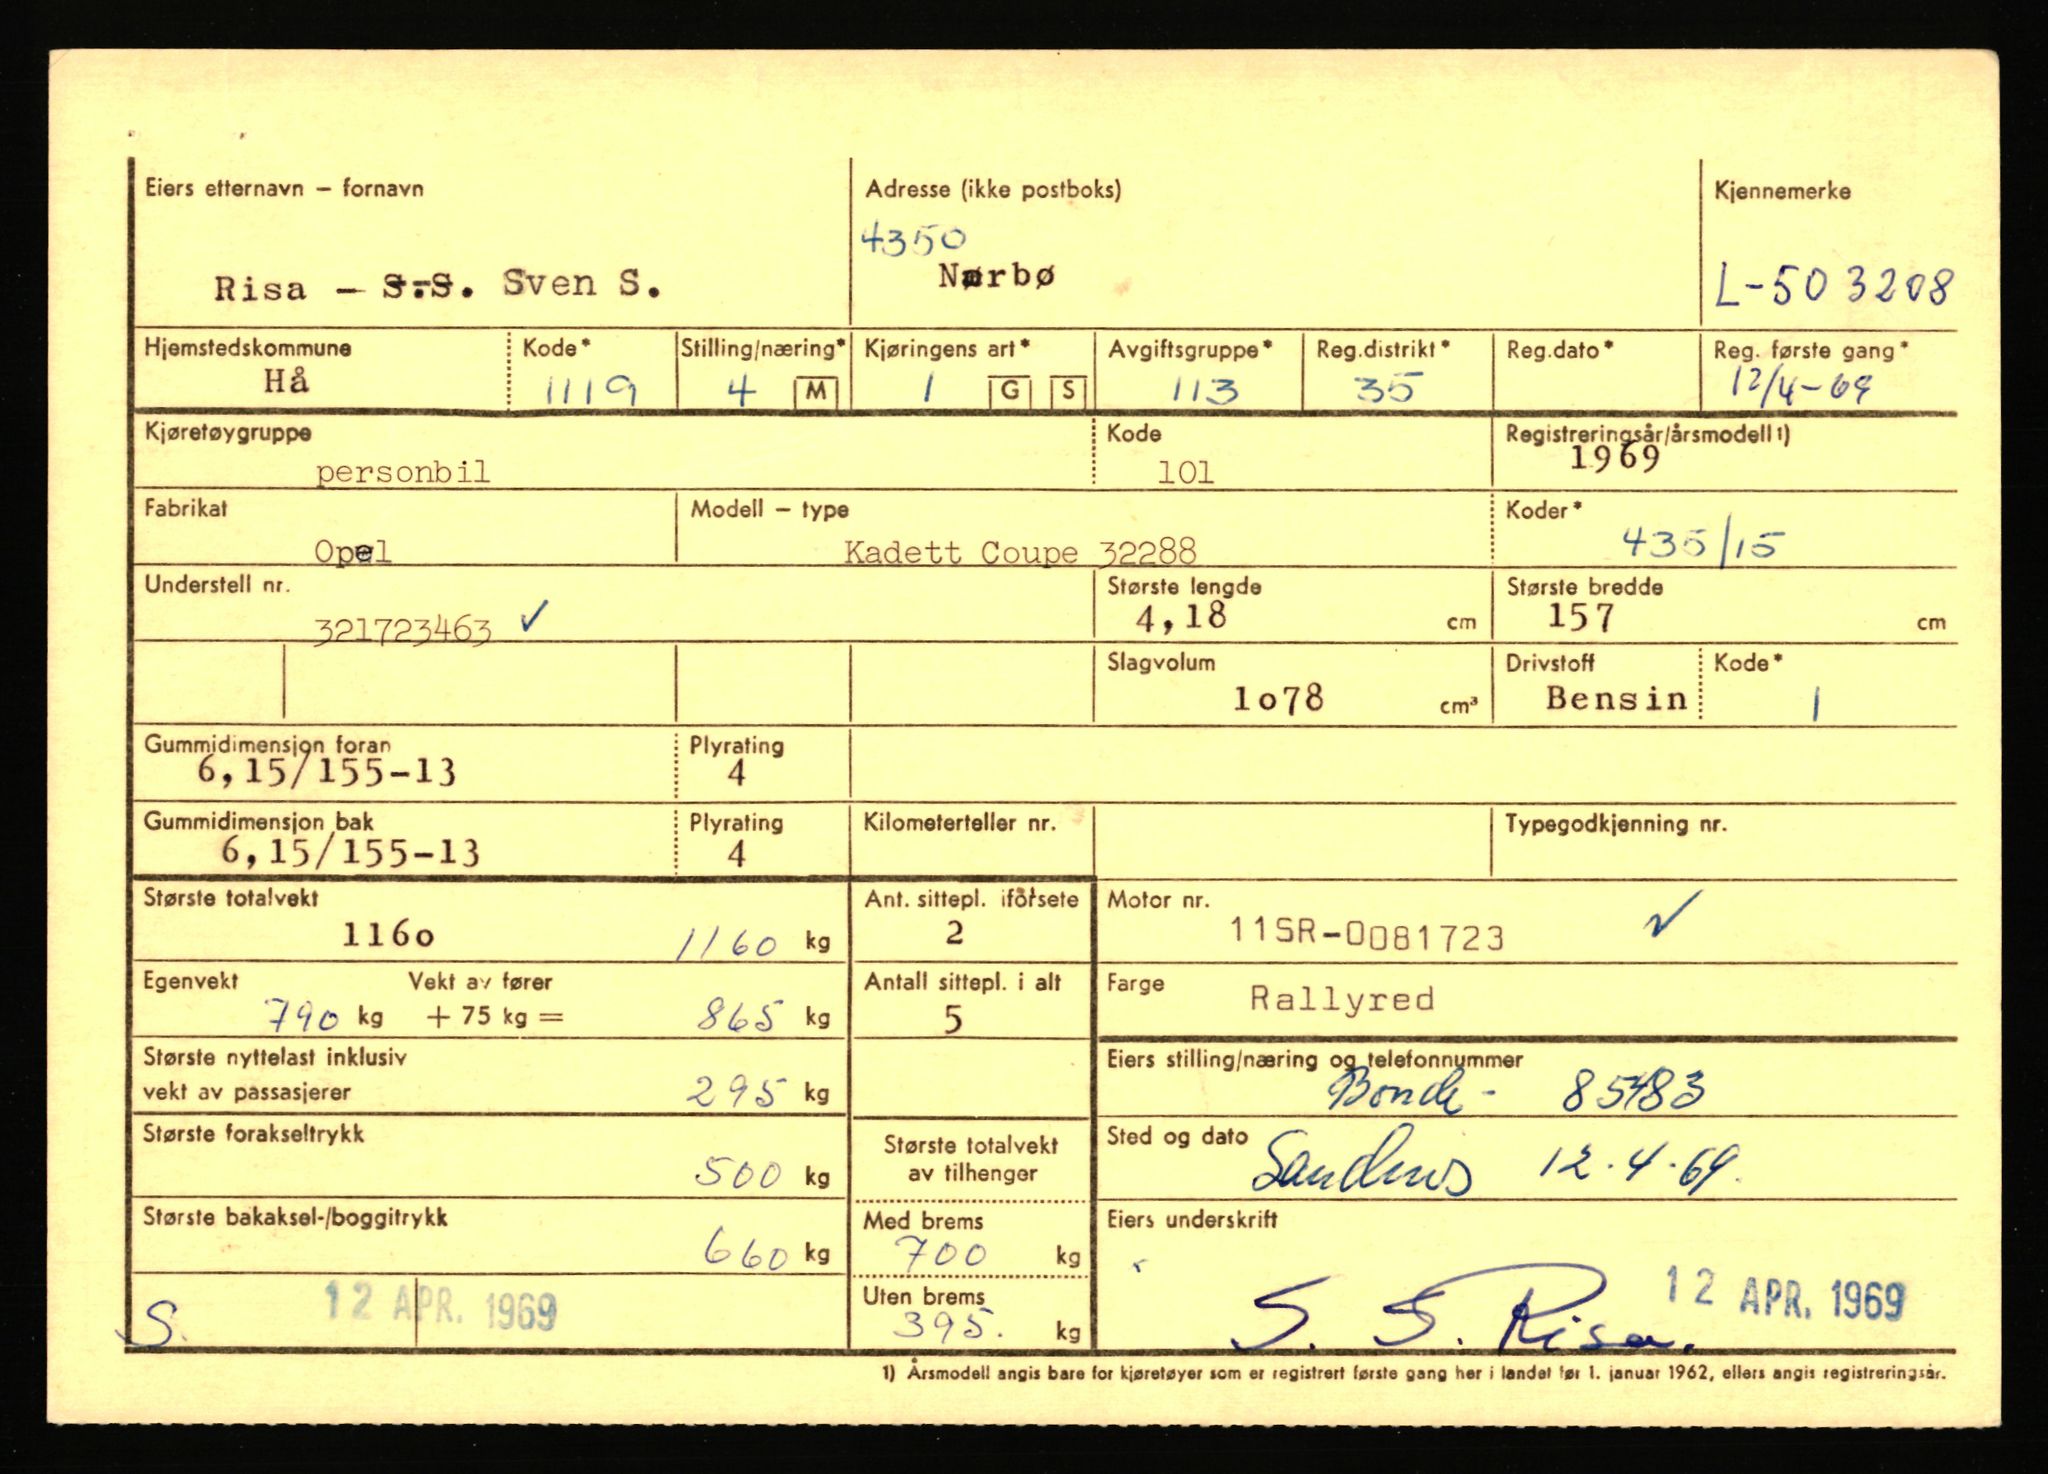 Eiers etternavn – fornavn
Adresse (ikke postboks)
Kjennemerke
4350
Risa – S.S. Sven S.
Nørbø
L-503208
Hjemstedskommune
Kode*
Stilling/næring*
Kjøringens art*
Avgiftsgruppe*
Reg.distrikt*
Reg.dato*
Reg. første gang*
Hå
1119
4 M
1 G S
113
35
12/4-69
Kjøretøygruppe
Kode
Registreringsår/årsmodell 1)
personbil
101
1969
Fabrikat
Modell – type
Koder*
Opel
Kadett Coupe 32288
435/15
Understell nr.
Største lengde
Største bredde
321723463 ✓
4,18 cm
157 cm
Slagvolum
Drivstoff
Kode*
1o78 cm³
Bensin
1
Gummidimensjon foran
Plyrating
6,15/155-13
4
Gummidimensjon bak
Plyrating
Kilometerteller nr.
Typegodkjenning nr.
6,15/155-13
4
Største totalvekt
Ant. sittepl. i førsete
Motor nr.
116o 1160 kg
2
11SR-0081723 ✓
Egenvekt
Vekt av fører
Antall sittepl. i alt
Farge
790 kg + 75 kg = 865 kg
5
Rallyred
Største nyttelast inklusiv
vekt av passasjerer
295 kg
Eiers stilling/næring og telefonnummer
Bonde - 85483
Største forakseltrykk
500 kg
Største totalvekt
av tilhenger
Sted og dato
Sandnes 12.4.69.
Største bakaksel-/boggitrykk
660 kg
Med brems
700 kg
Eiers underskrift
S. 12 APR. 1969
Uten brems
395. kg
S. S. Risa.
12 APR. 1969
1) Årsmodell angis bare for kjøretøyer som er registrert første gang her i landet før 1. januar 1962, ellers angis registreringsår.